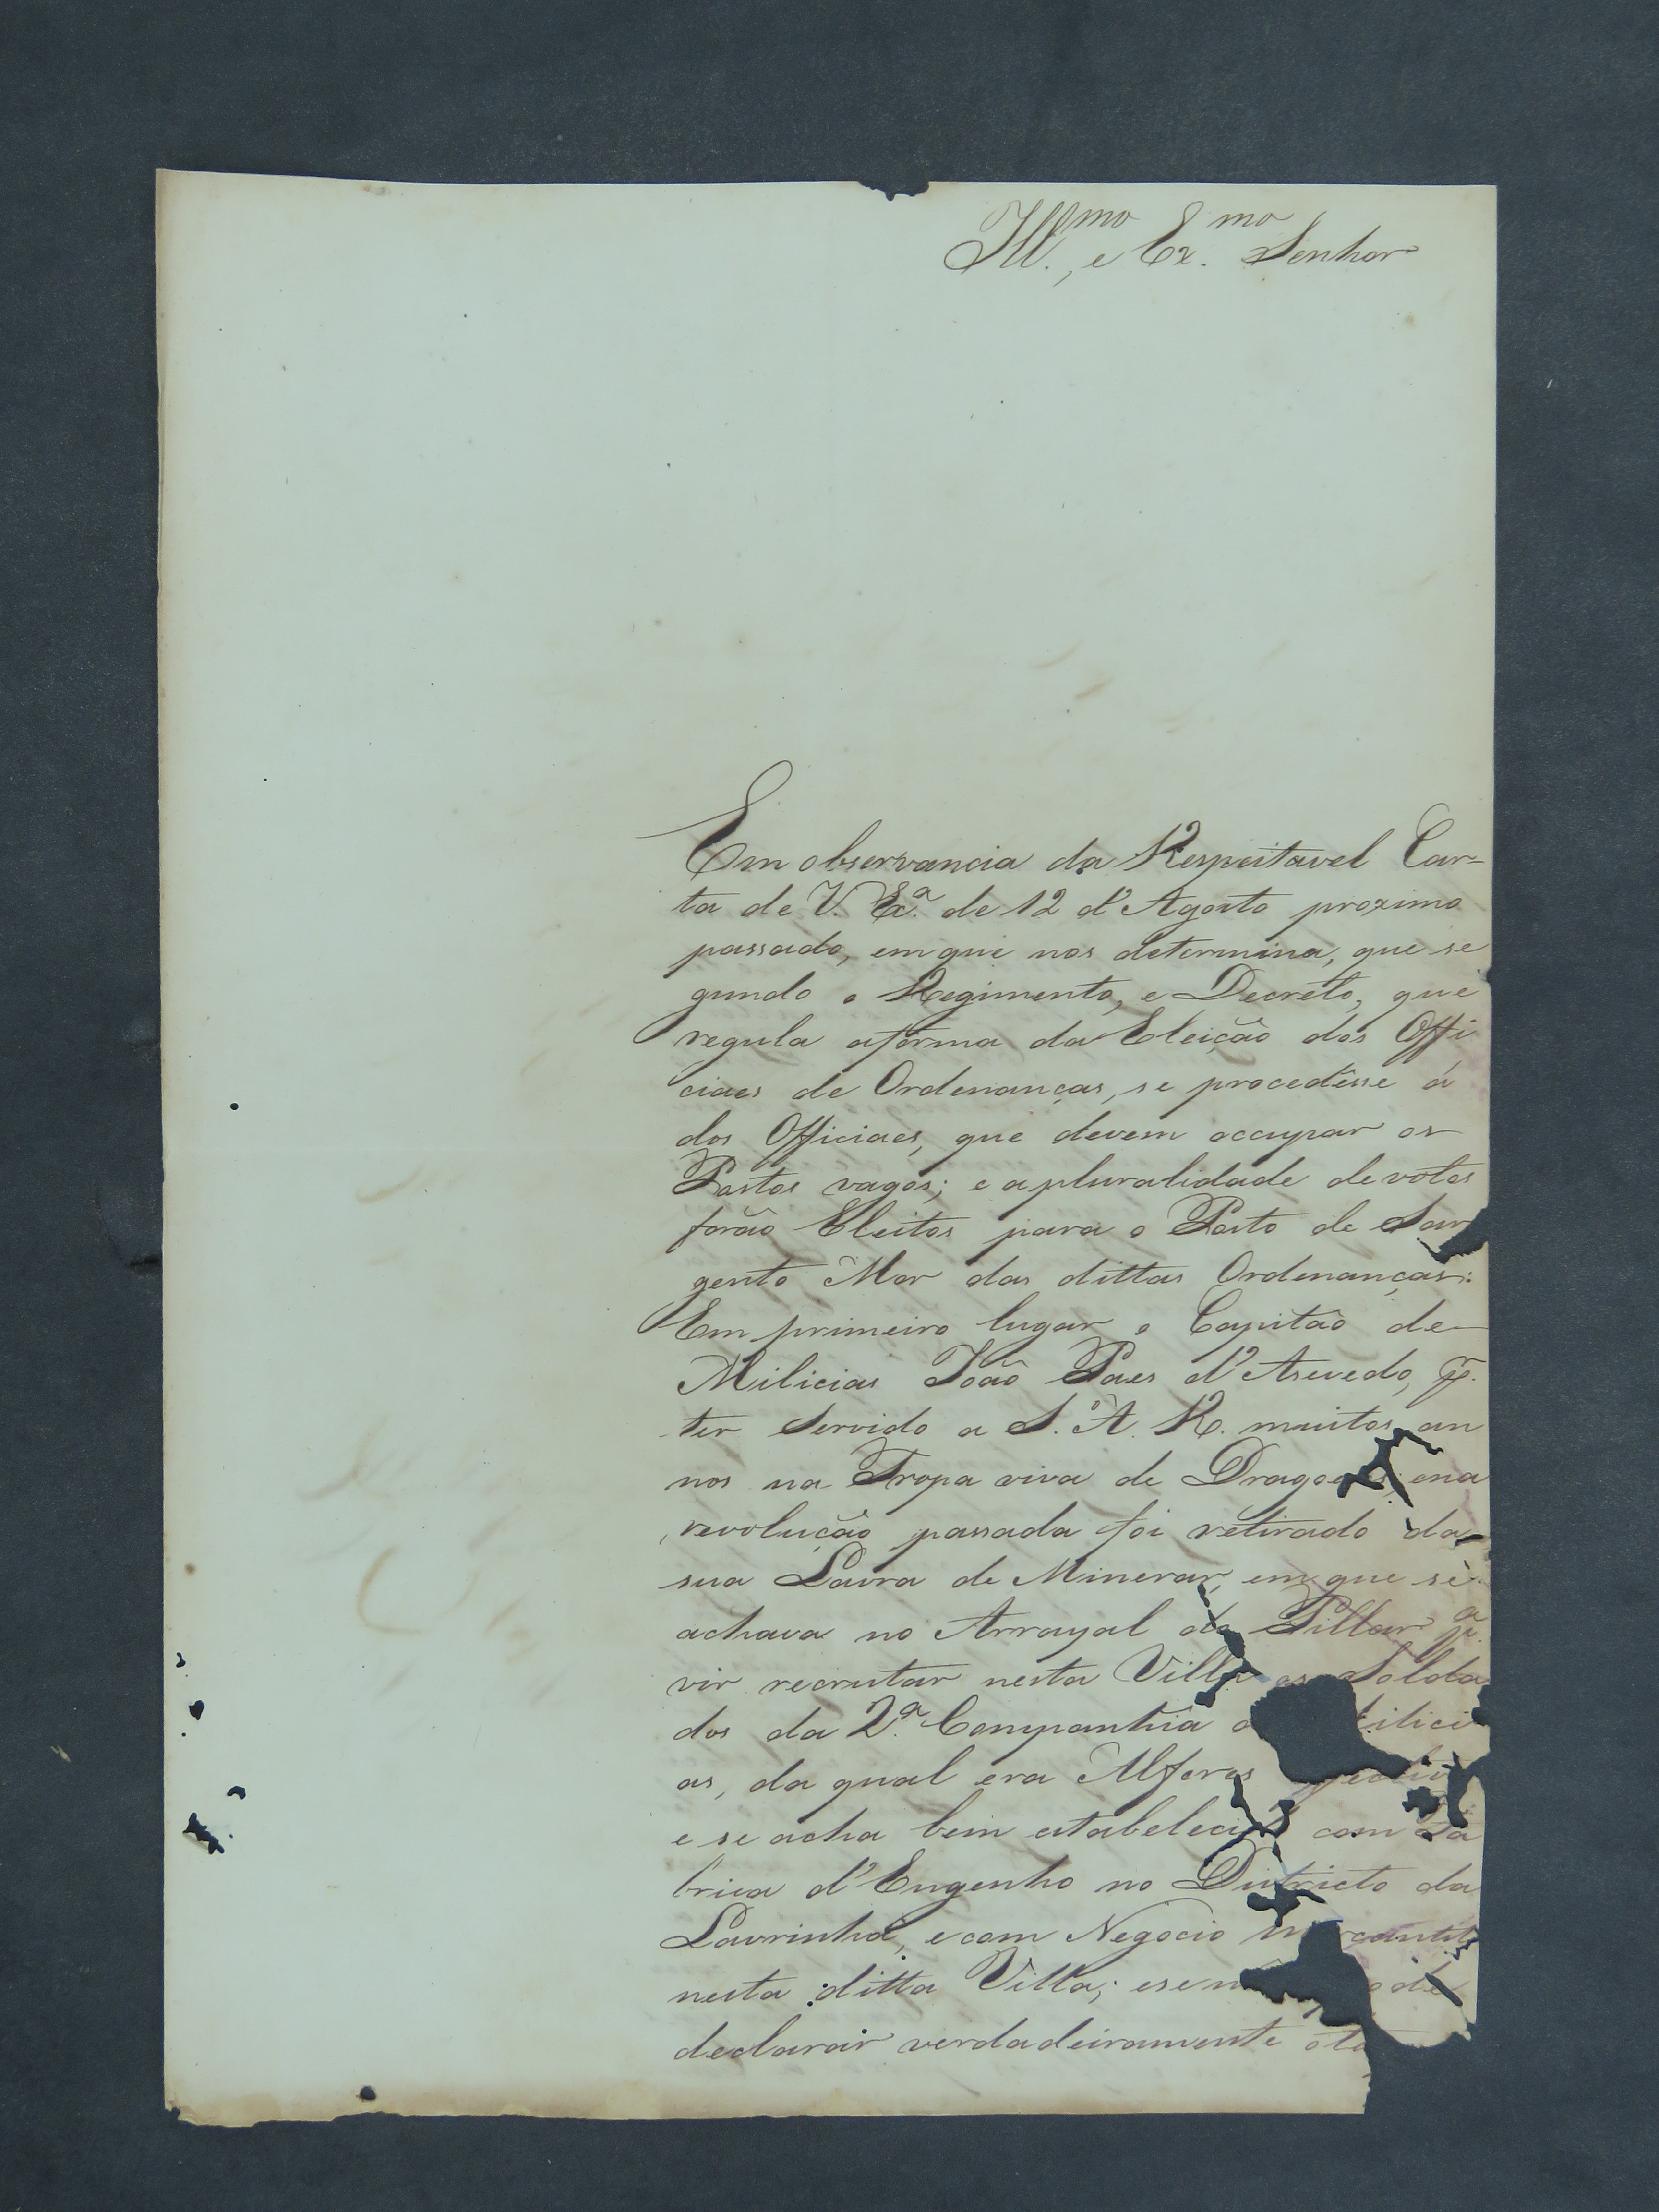 Ill.mo, e Ex.mo Senhor
Em observancia da Respeitavel Car-
ta de V. Ex.a de 12 d'Agosto proximo
passado, em que nos determina, que se
gundo o Regimento, e Decreto, que
regula aforma da Eleição dos Offi
ciaes de Ordenanças, se procedesse á
dos Officiaes, que devem occupar os
Postos vagos; e apluralidade devotos
forão Eleitos para o Posto de Sar
gento Mor das dittas Ordenanças:
Em primeiro lugar o Capitão de
Milicias João Paes d'Asevedo, p.
ter Servido a S. A. R. muitos an
nos na Tropa viva de Dragoes, ena
revolução passada foi retirado da
sua Lavra de Minerar, em que se
achava no Arrayal do Pillar p.a
vir recrutar nesta Villa os Solda
dos da 2.a Companhia
as, da qual era Alferes
e se acha bem estabelecido com Fa
brica d'Engenho no Districto da
Lavrinha, ecom Negocio Mercantil
nesta ditta Villa;
declarar verdadeiramente